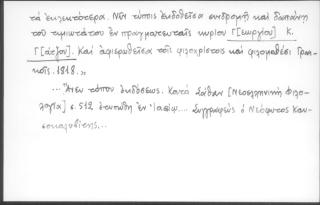 τὰ ἐκλεκτότερα. Νῦν τύποις ἐκδοθεῖσα συνδρομῇ καὶ δαπάνῃ
τοῦ τιμιωτάτου ἐν πραγματευταῖς κυρίου Γ[εωργίου] Κ.
Γ[άτζου]. Καὶ ἀφιερωθεῖσα τοῖς φιλοχρίστοις καὶ φιλομαθέσι Γραι-
κοῖς. 1818.,,
... Ἄνευ τόπου ἐκδόσεως. Κατὰ Σάθαν [Νεοελληνικὴ Φιλο-
λογία] σ. 512 ἐτυπώθη ἐν Ἰασίῳ.... Συγγραφεὺς ὁ Νεόφυτος Καυ-
σοκαλυβίτης...